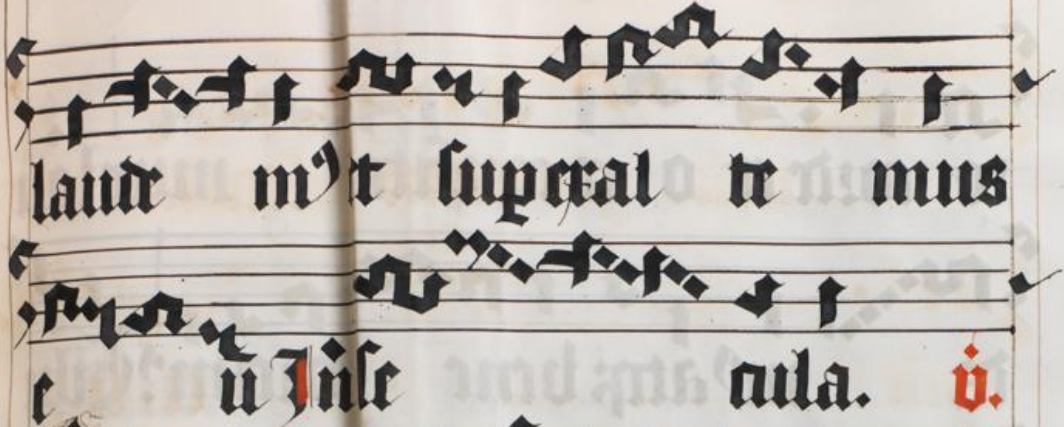 laude mꝰ ⁊t superexal te mus
e ū Inse cula. v̇.